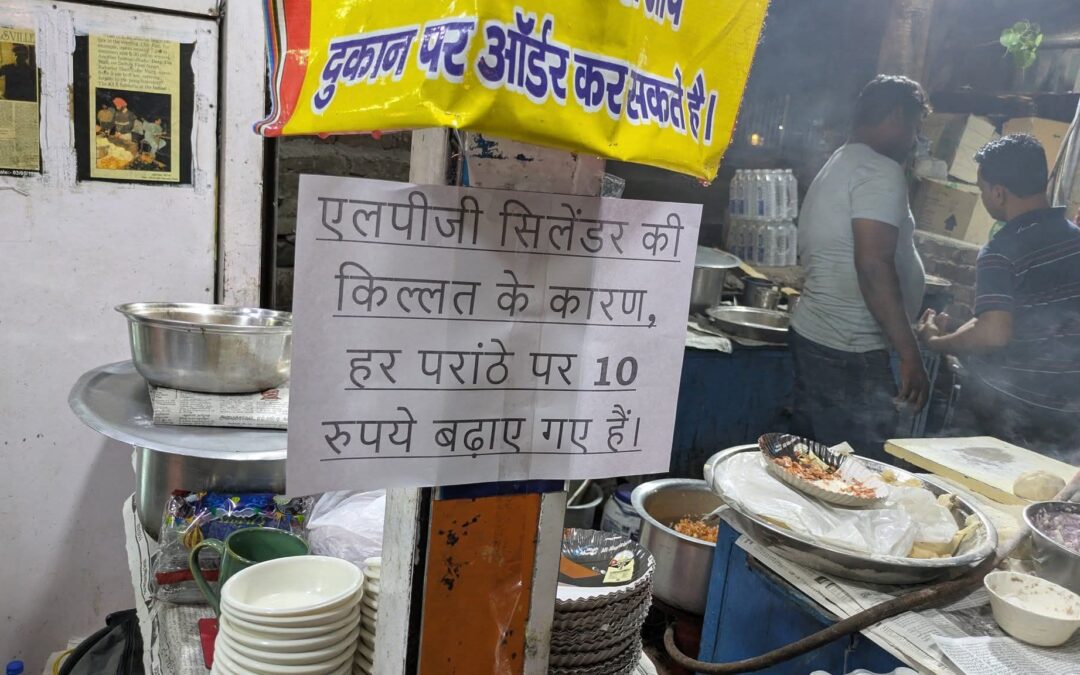 दुकान पर ऑर्डर कर सकते है।
एलपीजी सिलेंडर की
किल्लत के कारण,
हर परांठे पर 10
रुपये बढ़ाए गए हैं।